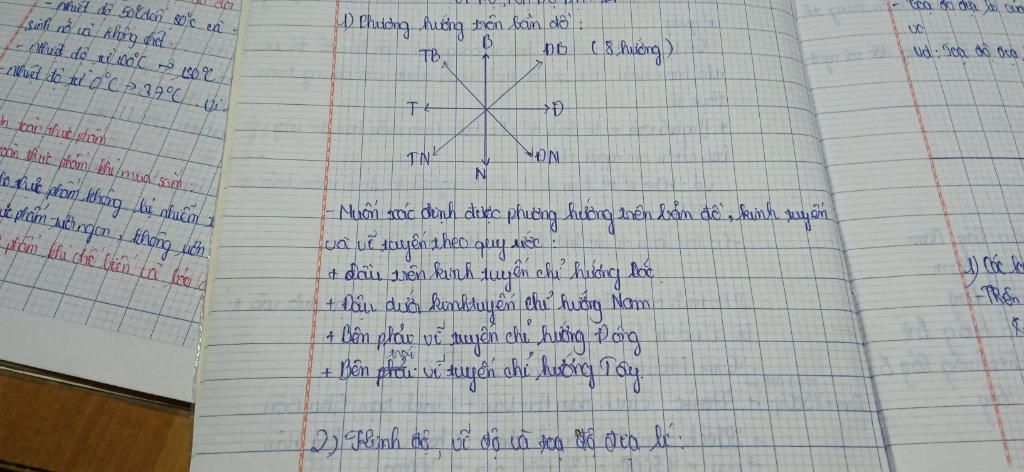 - Nhiệt độ 50°C đến 80°C vi
sinh nở và không chết.
- Nhiệt độ từ 100°C → 150°C
- Nhiệt độ từ 0°C → 37°C. Vi
toàn thực phẩm.
toàn thực phẩm khi mua sắm:
thực phẩm không bị nhiễm
thực phẩm tươi ngon, không ươn
phẩm khi chế biến và bảo
1) Phương hướng trên bản đồ:
B
TB
ĐB (8 hướng)
T
Đ
TN
ĐN
N
- Muốn xác định được phương hướng trên bản đồ, kinh tuyến
và vĩ tuyến theo quy ước:
+ Đầu trên kinh tuyến chỉ hướng Bắc
+ Đầu dưới kinh tuyến chỉ hướng Nam
+ Bên phải vĩ tuyến chỉ hướng Đông
+ Bên trái vĩ tuyến chỉ hướng Tây.
2) Kinh độ, vĩ độ và toạ độ địa lí:
- Toạ độ địa lí
vd: Toạ độ địa
1) Các
- Trên